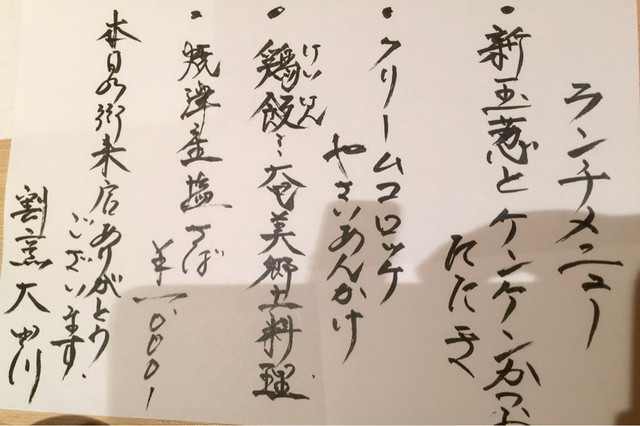 ランチメニュー
・新玉葱とケンケンかつお
たたき
・クリームコロッケ
やさいあんかけ
・鶏飯 奄美郷土料理
けいはん
・焼津産塩さば
¥1,000
本日の御来店ありがとう
ございます。
割烹大